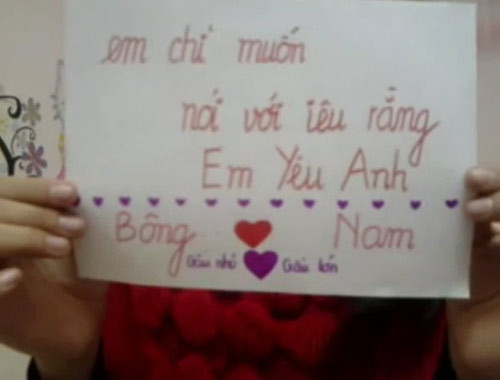 em chỉ muốn
nói với iêu rằng
Em Yêu Anh
Bông Nam
Gấu nhỏ Gấu lớn